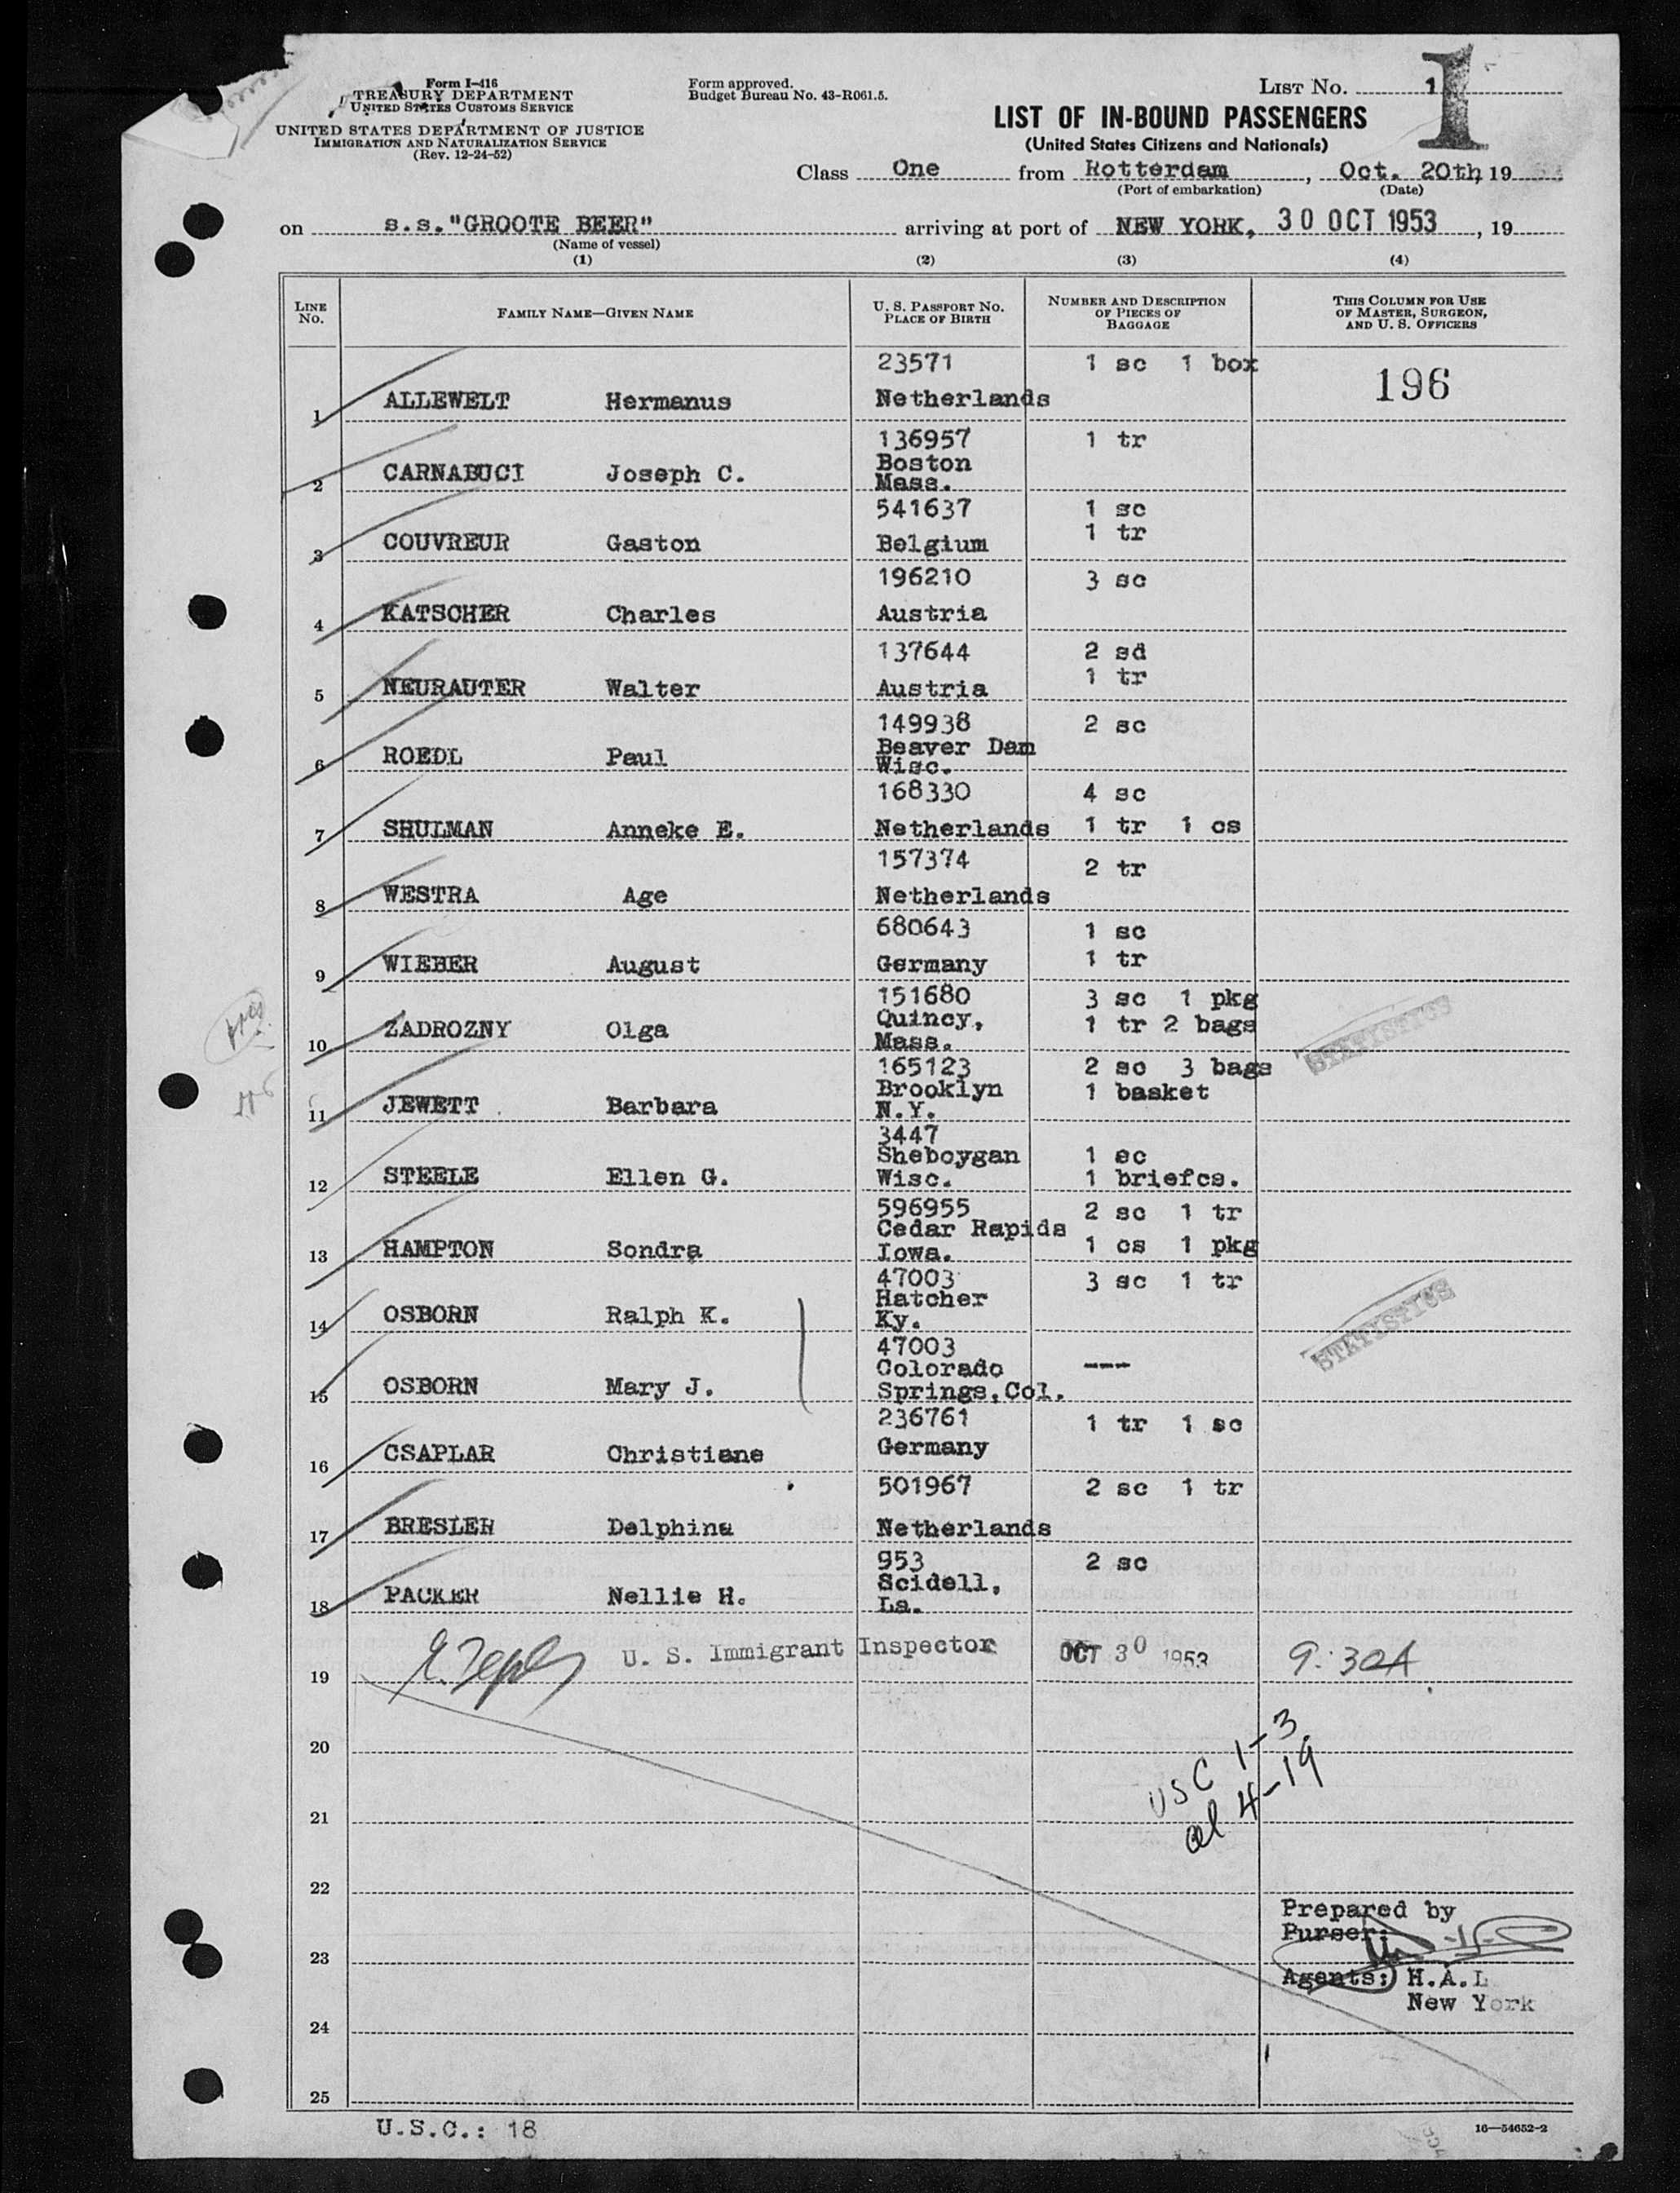 Form I-416
TREASURY DEPARTMENT
UNITED STATES CUSTOMS SERVICE
UNITED STATES DEPARTMENT OF JUSTICE
IMMIGRATION AND NATURALIZATION SERVICE
(Rev. 12-24-52)
Form approved.
Budget Bureau No. 43-R061.5.
LIST NO. 1
1
LIST OF IN-BOUND PASSENGERS
(United States Citizens and Nationals)
Class One from Rotterdam, Oct. 20th, 19
(Port of embarkation) (Date)
on s.s."GROOTE BEER" arriving at port of NEW YORK, 30 OCT 1953, 19
(Name of vessel)
(1) (2) (3) (4)
LINE NO. FAMILY NAME—GIVEN NAME U. S. PASSPORT NO. PLACE OF BIRTH NUMBER AND DESCRIPTION OF PIECES OF BAGGAGE THIS COLUMN FOR USE OF MASTER, SURGEON, AND U. S. OFFICERS
23571 1 sc 1 box
196
1 ALLEWELT Hermanus Netherlands
136957 1 tr
Boston
2 CARNABUCI Joseph C. Mass.
541637 1 sc
1 tr
3 COUVREUR Gaston Belgium
196210 3 sc
4 KATSCHER Charles Austria
137644 2 sd
1 tr
5 NEURAUTER Walter Austria
149938 2 sc
Beaver Dam
6 ROEDL Paul Wisc.
168330 4 sc
7 SHULMAN Anneke E. Netherlands 1 tr 1 cs
157374 2 tr
8 WESTRA Age Netherlands
680643 1 sc
9 WIEBER August Germany 1 tr
151680 3 sc 1 pkg
Quincy, 1 tr 2 bags
10 ZADROZNY Olga Mass.
STATISTICS
165123 2 sc 3 bags
Brooklyn 1 basket
11 JEWETT Barbara N.Y.
3447
Sheboygan 1 sc
12 STEELE Ellen G. Wisc. 1 briefcs.
596955 2 sc 1 tr
Cedar Rapids
13 HAMPTON Sondra Iowa. 1 cs 1 pkg
47003 3 sc 1 tr
Hatcher
14 OSBORN Ralph K. Ky.
STATISTICS
47003
Colorado ---
15 OSBORN Mary J. Springs,Col.
236761 1 tr 1 sc
16 CSAPLAR Christiane Germany
501967 2 sc 1 tr
17 BRESLER Delphina Netherlands
953 2 sc
Scidell,
18 PACKER Nellie H. La.
U. S. Immigrant Inspector OCT 30 1953 9:30A
19
20
USC 1-3
al 4-19
21
22
Prepared by
Purser:
23
Agents: H.A.L
New York
24
25
U.S.C.: 18
16—54652-2